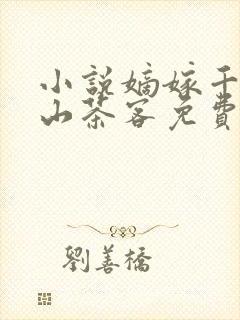 小說嫡嫁千
山茶客免費
劉善橋